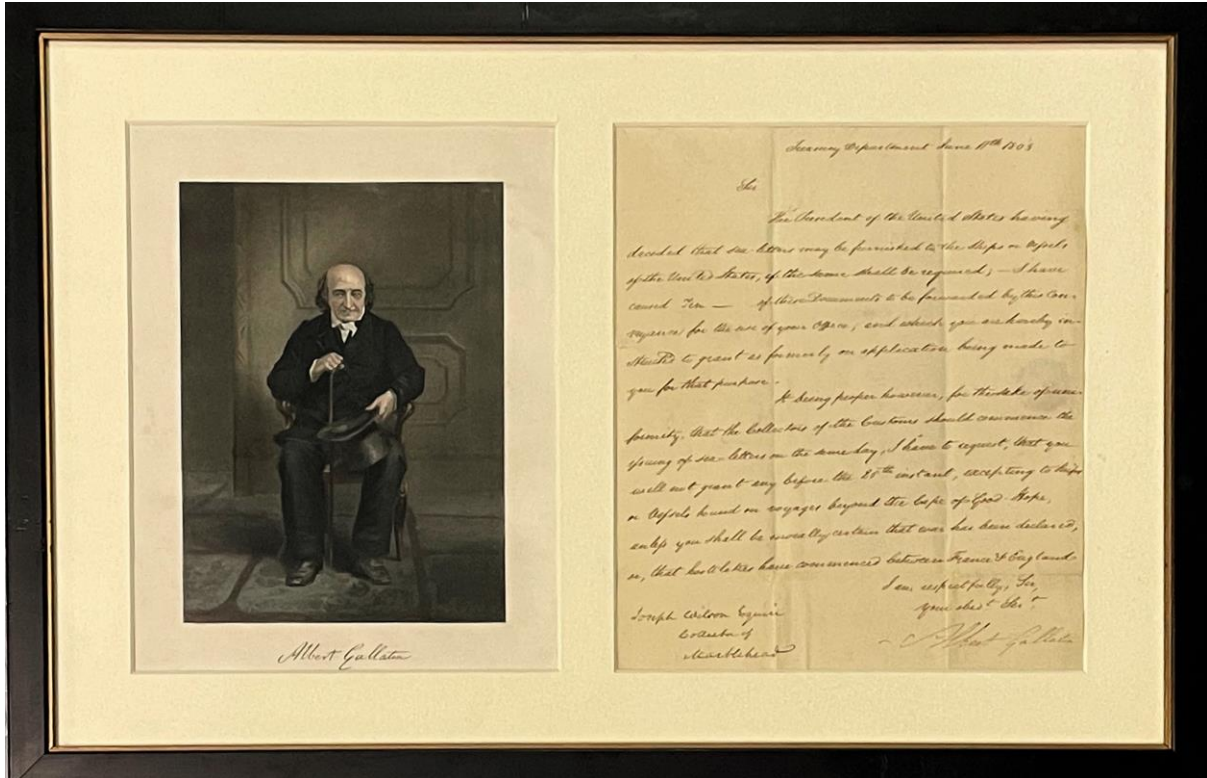 Albert Gallatin
Treasury Department June 11th 1803
Sir
The President of the United States having
decided that sea letters may be furnished to the ships or vessels
of the United States, if the same shall be required; — I have
caused Ten — of these Documents to be forwarded by this con-
veyance for the use of your Office, and which you are hereby in-
structed to grant as formerly on application being made to
you for that purpose.
It being proper however, for the sake of uni-
formity, that the Collectors of the Customs should commence the
issuing of sea-letters on the same day, I have to request, that you
will not grant any before the 25th instant, excepting to ships
or vessels bound on voyages beyond the Cape of Good-Hope,
unless you shall be morally certain that war has been declared,
or, that hostilities have commenced between France & England
I am respectfully, Sir,
your obedt Servt
Albert Gallatin
Joseph Wilson Esquire
Collector of
Marblehead